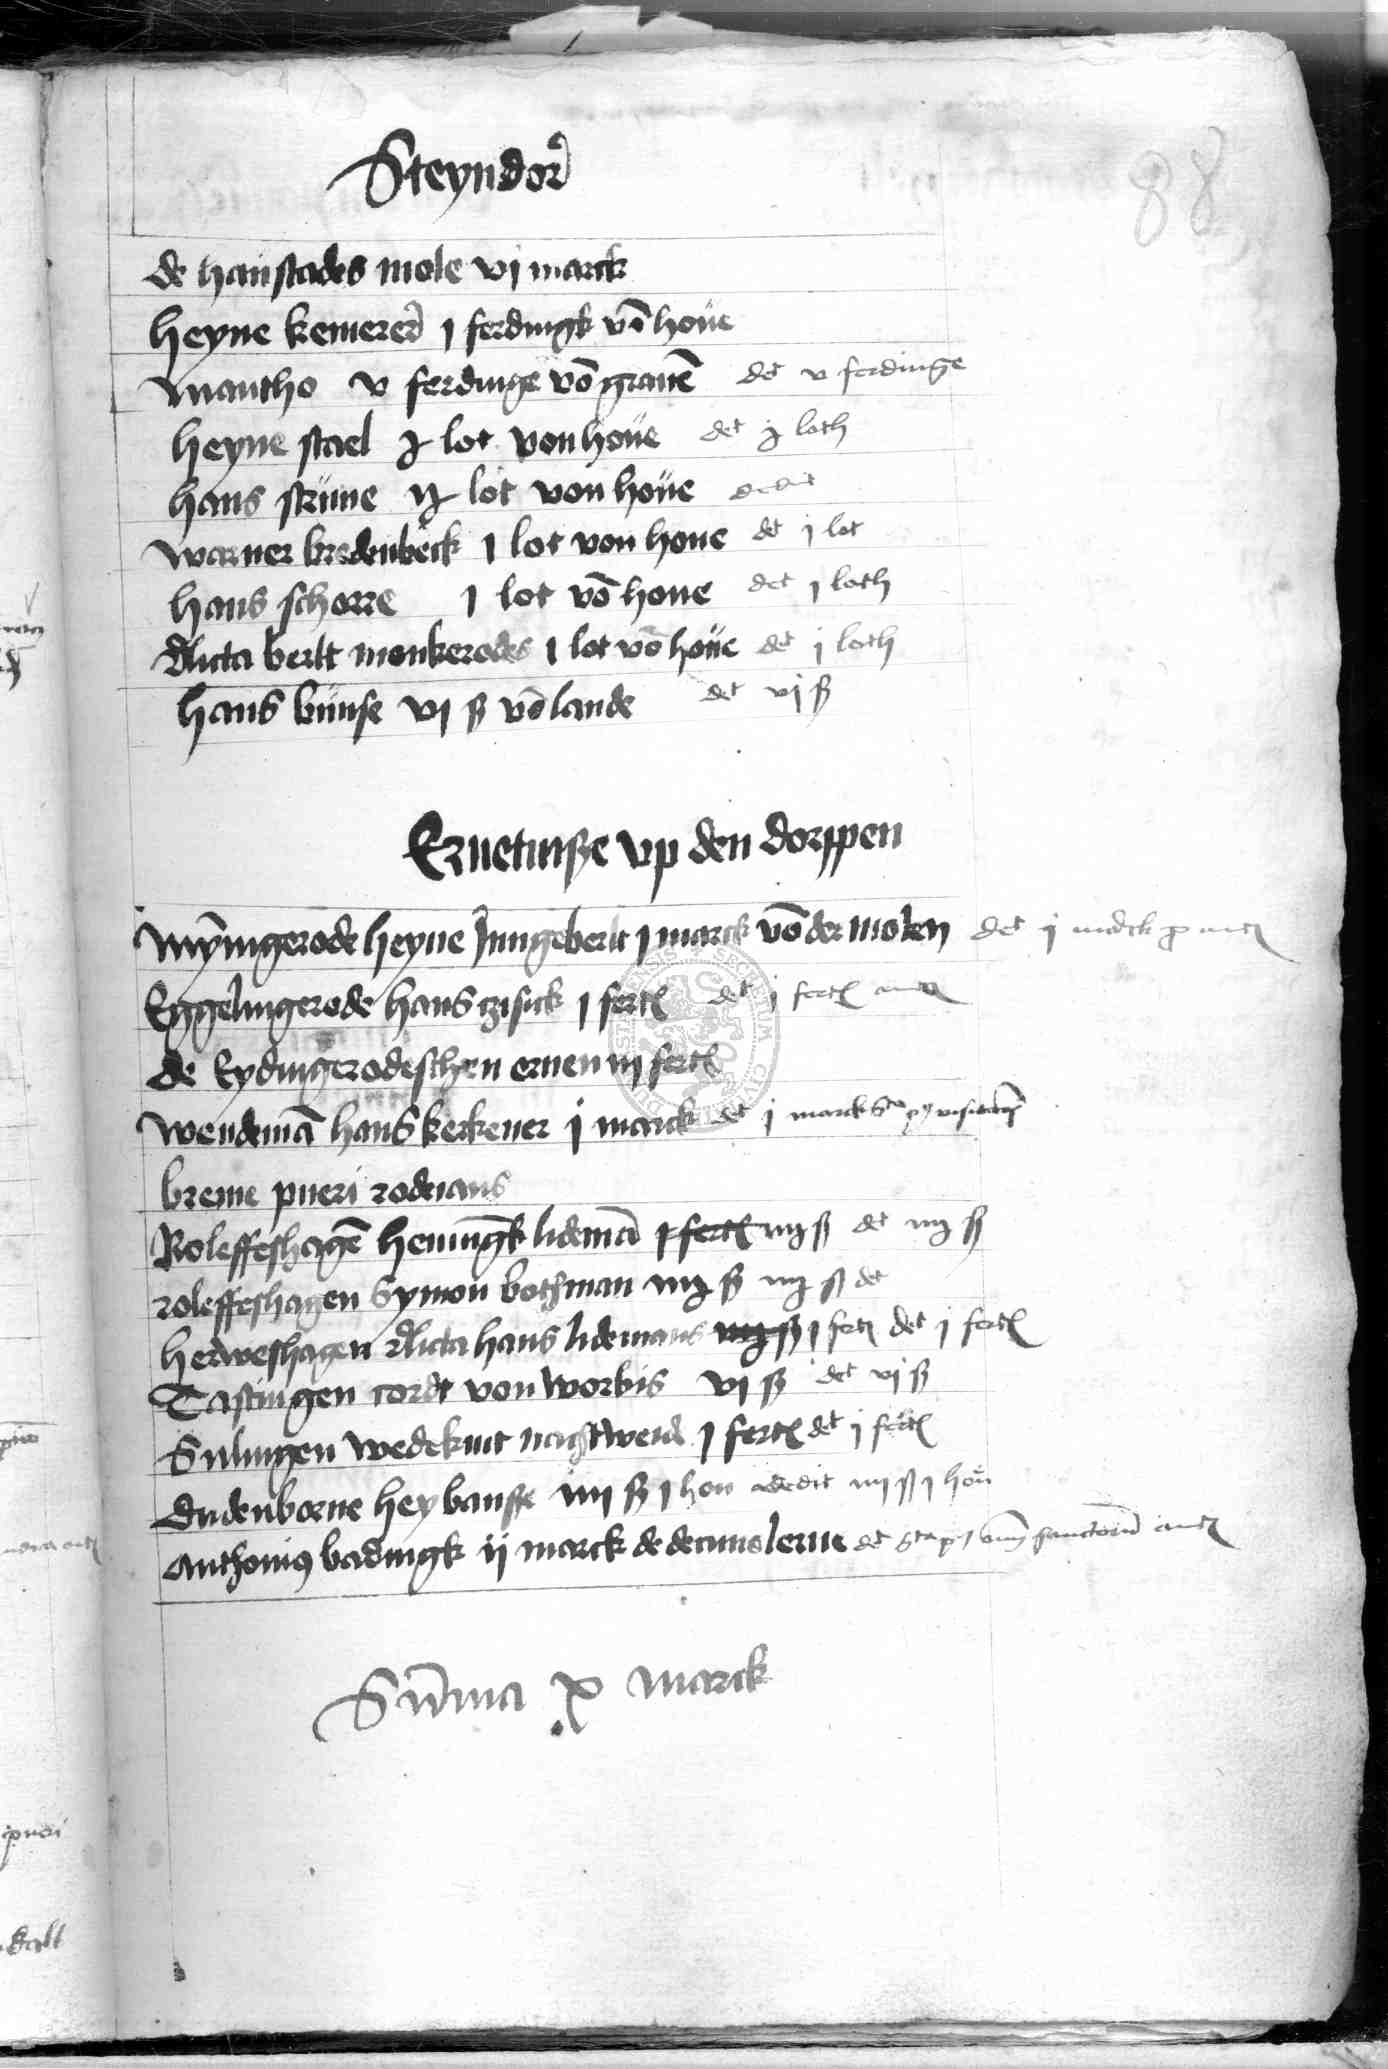 Steyndor
88
de hanstades mole vj marck
heyne kemerer j ferdingk vō houe
Mantho v ferdinge vō grauē det v ferdinge
heyne stael j lot von houe det j loth
hans strune ij lot von houe dedit
Warner bredenbeck j lot von houe det j lot
hans schorre j lot vō houe det j loth
Relicta bertt monkerodes j lot vō houe det j loth
hans kunse vj ß vō lande det vj ß
Eruetinße vp den dorppen
Myngerode heyne Jungeberlt j marck vō der molen det j marck
Eggelingerode hans czisick j fert det j fert
de Eydingerodeschen eruen iij fert
Wendemā hans kerkener j marck det j marck
breme pueri rodeians
Roleffeshagē henningk lidemā j fert iiij ß det iiij ß
roleffeshagen Symon bothman iiij ß iiij ß det
herweshagen Relicta hans lidemans iiij ß j fert det j fert
Tastingen cordt von Worbis vj ß det vj ß
Sulingen Wedekint nachtweid j fert det j fert
Dudenborne hey banße iiij ß j hon dedit iiij ß j hon
Anthonius badingk ij marck de decimis lerne det
Sūma x marck